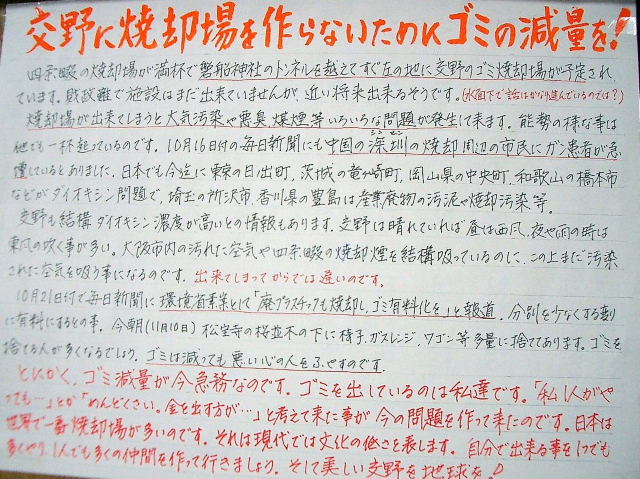 交野に焼却場を作らないためにゴミの減量を!
四条畷の焼却場が満杯で磐船神社のトンネルを越えてすぐ左の地に交野のゴミ焼却場が予定され
ています。財政難で施設はまだ出来ていませんが、近い将来出来るそうです。(水面下で話はかなり進んでいるのでは?)
焼却場が出来てしまうと大気汚染や悪臭、煤煙等いろいろな問題が発生して来ます。能勢の様な事は
他でも一杯起っているのです。10月16日の毎日新聞にも中国の深圳の焼却周辺の市民にガン患者が急
増しているとありました。日本でも今迄に東京の日出町、茨城の竜ヶ崎町、岡山県の中央町、和歌山の橋本市
などがダイオキシン問題で、埼玉の所沢市、香川県の豊島は産業廃物の汚泥や焼却汚染等。
交野も結構ダイオキシン濃度が高いとの情報もあります。交野は晴れていれば昼は西風、夜や雨の時は
東風の吹く事が多い。大阪市内の汚れた空気や四条畷の焼却煙を結構吸っているのに、この上まだ汚染
された空気を吸う事になるのです。出来てしまってからでは遅いのです。
10月21日付で毎日新聞に環境省素案として「廃プラスチックも焼却し、ゴミ有料化を」と報道。分別を少なくする割
に有料にするとの事。今朝(11月10日)松宝寺の桜並木の下に椅子、ガスレンジ、ワゴン等多量に捨ててあります。ゴミを
捨てる人が多くなるでしょう。ゴミは減っても悪い心の人をふやすのです。
とにかく、ゴミ減量が今急務なのです。ゴミを出しているのは私達です。「私1人がや
っても…」とか「めんどくさい。金を出す方が…」と考えて来た事が今の問題を作って来たのです。日本は
世界で一番焼却場が多いのです。それは現代では文化の低さを表します。自分で出来る事を1つでも
多くやり、1人でも多くの仲間を作って行きましょう。そして美しい交野を地球を!